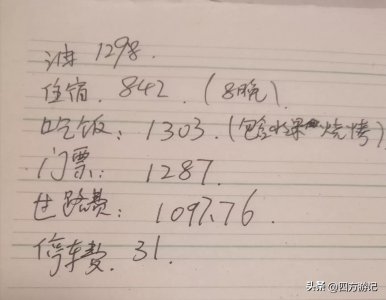 油 1298.
住宿. 842. (8晚).
吃饭: 1303. (包含水果 烧烤)
门票: 1287.
过路费: 1097.76.
停车费. 31.
头条 @四方游记